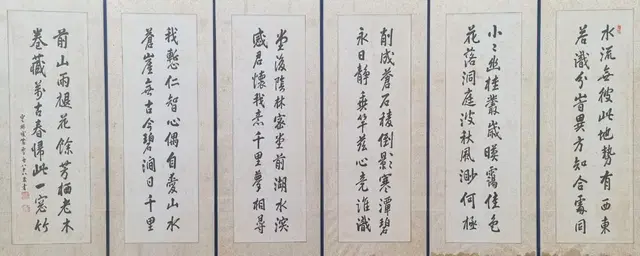 水流無彼此地勢有西東
若識分時異方知合處同
小山幽桂叢歲暮靄佳色
花落洞庭波秋風渺何極
削成蒼石稜倒影寒潭碧
永日靜垂竿茲心竟誰識
堂後陰林密堂前湖水深
感君懷我意千里夢相尋
我慙仁智心偶自愛山水
蒼崖無古今碧澗日千里
前山雨褪花餘芳栖老木
卷藏萬古春歸此一窓竹